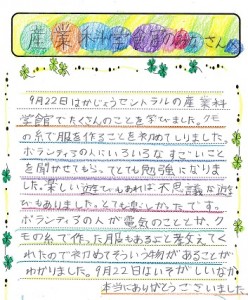 産業科学館の皆さんへ
9月22日はかじょうセントラルの産業科
学館でたくさんのことを学びました。クモ
の糸で服を作ることを初めてしりました。
ボランティアの人にいろいろなすごいこと
を聞かせてもらってとても勉強になりま
した。楽しい遊びもあれば不思議な遊
びもありました。とても楽しかったです。
ボランティアの人が電気のこととか、クモ
の糸で作った服もあるよと教えてく
れたので初めてそういう物があることが
わかりました。9月22日はいそがしいなか
本当にありがとうございました